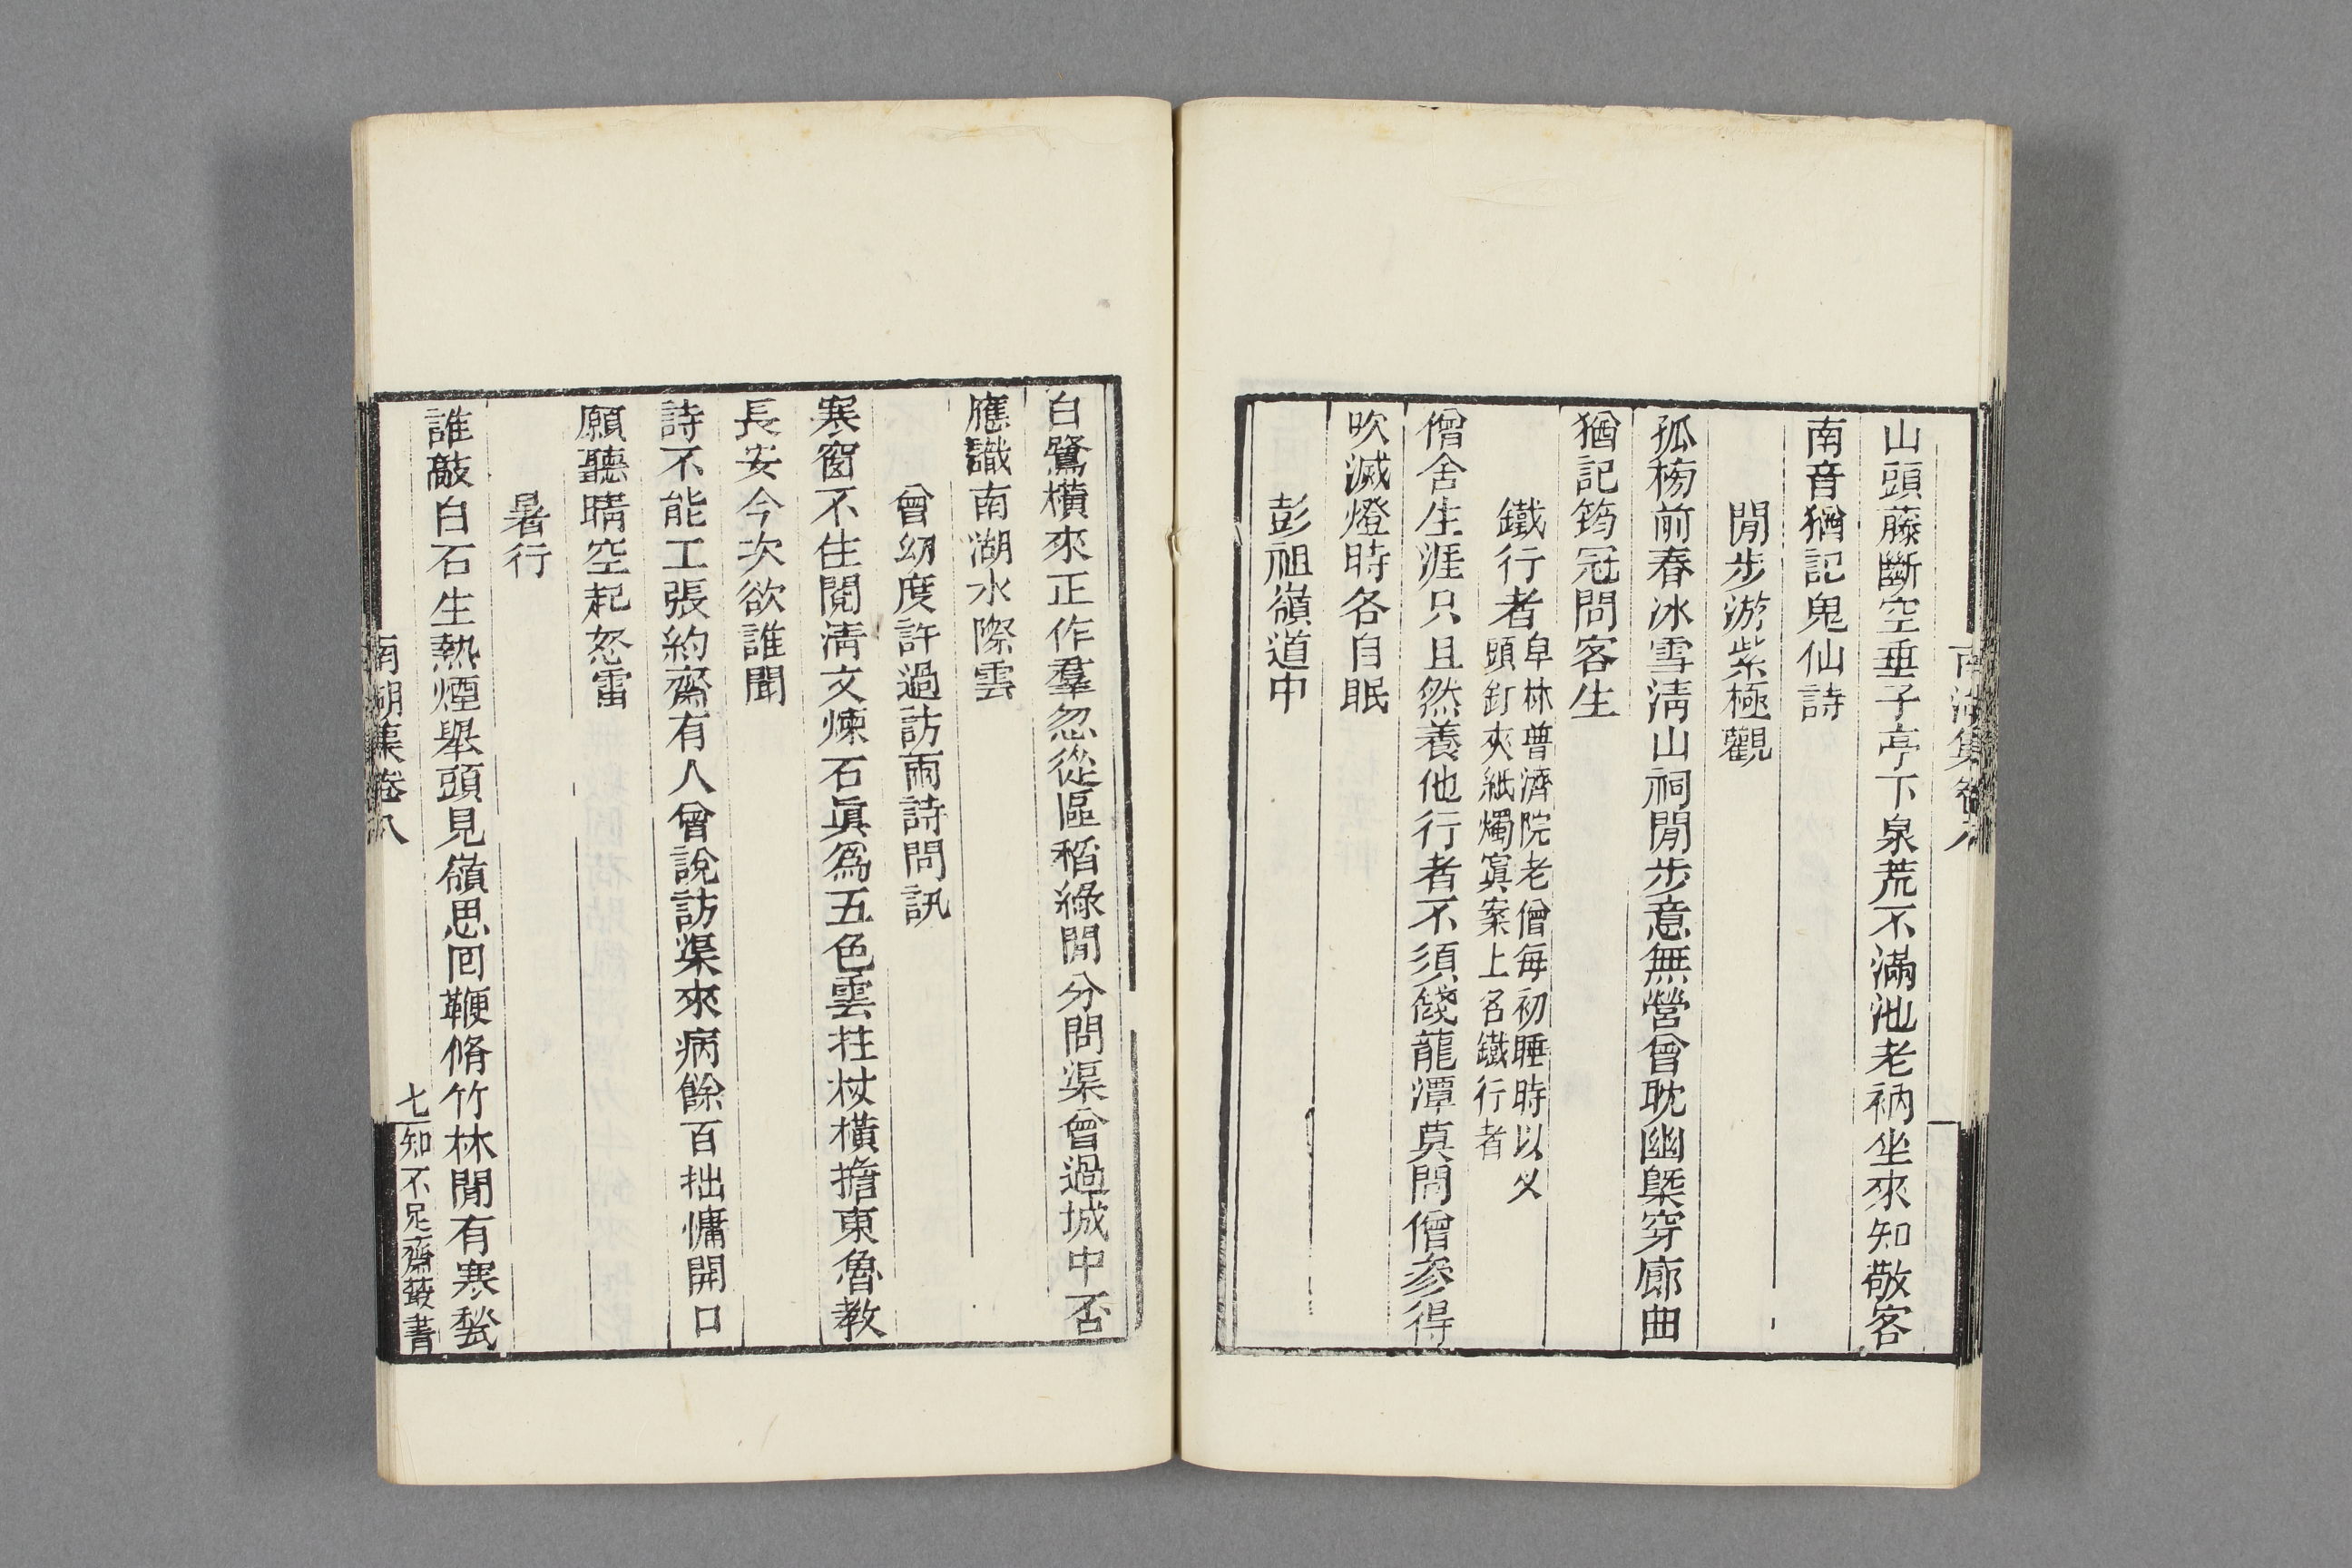 山頭藤斷空垂子亭下泉荒不滿池老衲坐來知敬客
南音猶記鬼仙詩
閒步游紫極觀
孤榜前春冰雪淸山祠閒步意無營曾耽幽槩穿廊曲
猶記筠冠問客生
鐵行者
阜林普濟院老僧每初睡時以义
頭釘夾紙燭寘案上名鐵行者
僧舍生涯只且然養他行者不須餞龍潭莫問僧參得
吹滅燈時各自眠
彭祖嶺道中
白鷺橫來正作羣忽從區稻綠閒分問渠曾過城中否
應識南湖水際雲
曾幼度許過訪兩詩問訊
寒窗不住閱淸文煉石眞爲五色雲拄杖橫擔東魯教
長安今次欲誰聞
詩不能工張約齋有人曾說訪渠來病餘百拙慵開口
願聽晴空起怒雷
暑行
誰敲白石生熱煙舉頭見嶺思回鞭脩竹林閒有寒甃
南湖集卷八
七
知不足齋叢書